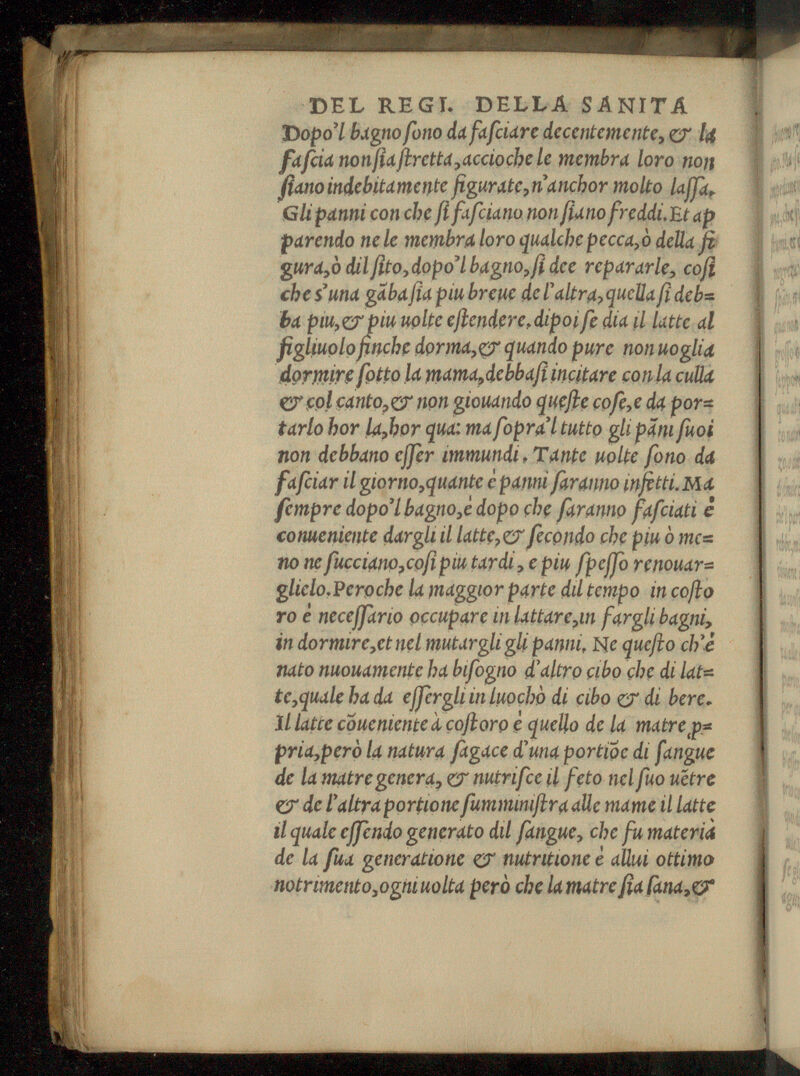 DEL REGI. DELLA SANITA
Dopo'l bagno ſono da faſciare decentemente, & la
faſcia non ſia ſtretta, accioche le membra loro non
ſiano indebitamente figurate, n'anchor molto laſſa.
Gli panni con che ſi faſciano non ſiano freddi. Et ap
parendo ne le membra loro qualche pecca, ò della fi
gura, ò dil ſito, dopo'l bagno, ſi dee repararle, coſi
che s'una gãba ſia piu breue de l'altra, quella ſi deb=
ba piu, & piu uolte eſtendere. dipoi ſe dia il latte al
figliuolo finche dorma, & quando pure non uoglia
dormire ſotto la mama, debbaſi incitare con la culla
& col canto, & non giouando queſte coſe, e da por=
tarlo hor la, hor qua: ma ſopra'l tutto gli pãni ſuoi
non debbano eſſer immundi. Tante uolte ſono da
faſciar il giorno, quante e panni ſaranno infetti. Ma
ſempre dopo'l bagno, e dopo che ſaranno faſciati è
conueniente dargli il latte, & ſecondo che piu ò me=
no ne ſucciano, coſi piu tardi, e piu ſpeſſo renouar=
glielo. Peroche la maggior parte dil tempo in coſto
ro è neceſſario occupare in lattare, in fargli bagni,
in dormire, et nel mutargli gli panni. Ne queſto ch'è
nato nuouamente ha biſogno d'altro cibo che di lat=
te, quale ha da eſſergli in luochò di cibo & di bere.
Il latte cõueniente à coſtoro è quello de la matre ꝓ=
pria, però la natura ſagace d'una portiõe di ſangue
de la matre genera, & nutriſce il feto nel ſuo uẽtre
& de l'altra portione ſumminiſtra alle mame il latte
il quale eſſendo generato dil ſangue, che fu materia
de la ſua generatione & nutritione è allui ottimo
notrimento, ogni uolta però che la matre ſia ſana, &